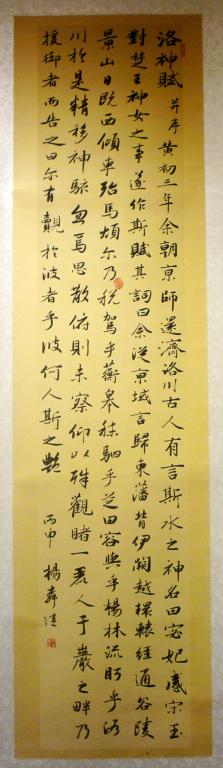 洛神賦 并序 黃初三年余朝京師還濟洛川古人有言斯水之神名曰宓妃感宋玉
對楚王神女之事遂作斯賦其詞曰余從京域言歸東藩背伊闕越轘轅經通谷陵
景山日既西傾車殆馬煩尔乃稅駕乎蘅皋秣駟乎芝田容與乎楊林流眄乎洛
川於是精移神駭忽焉思散俯則未察仰以殊觀睹一麗人于巖之畔乃
援御者而告之曰尔有覿於彼者乎彼何人斯之艷 丙申 楊